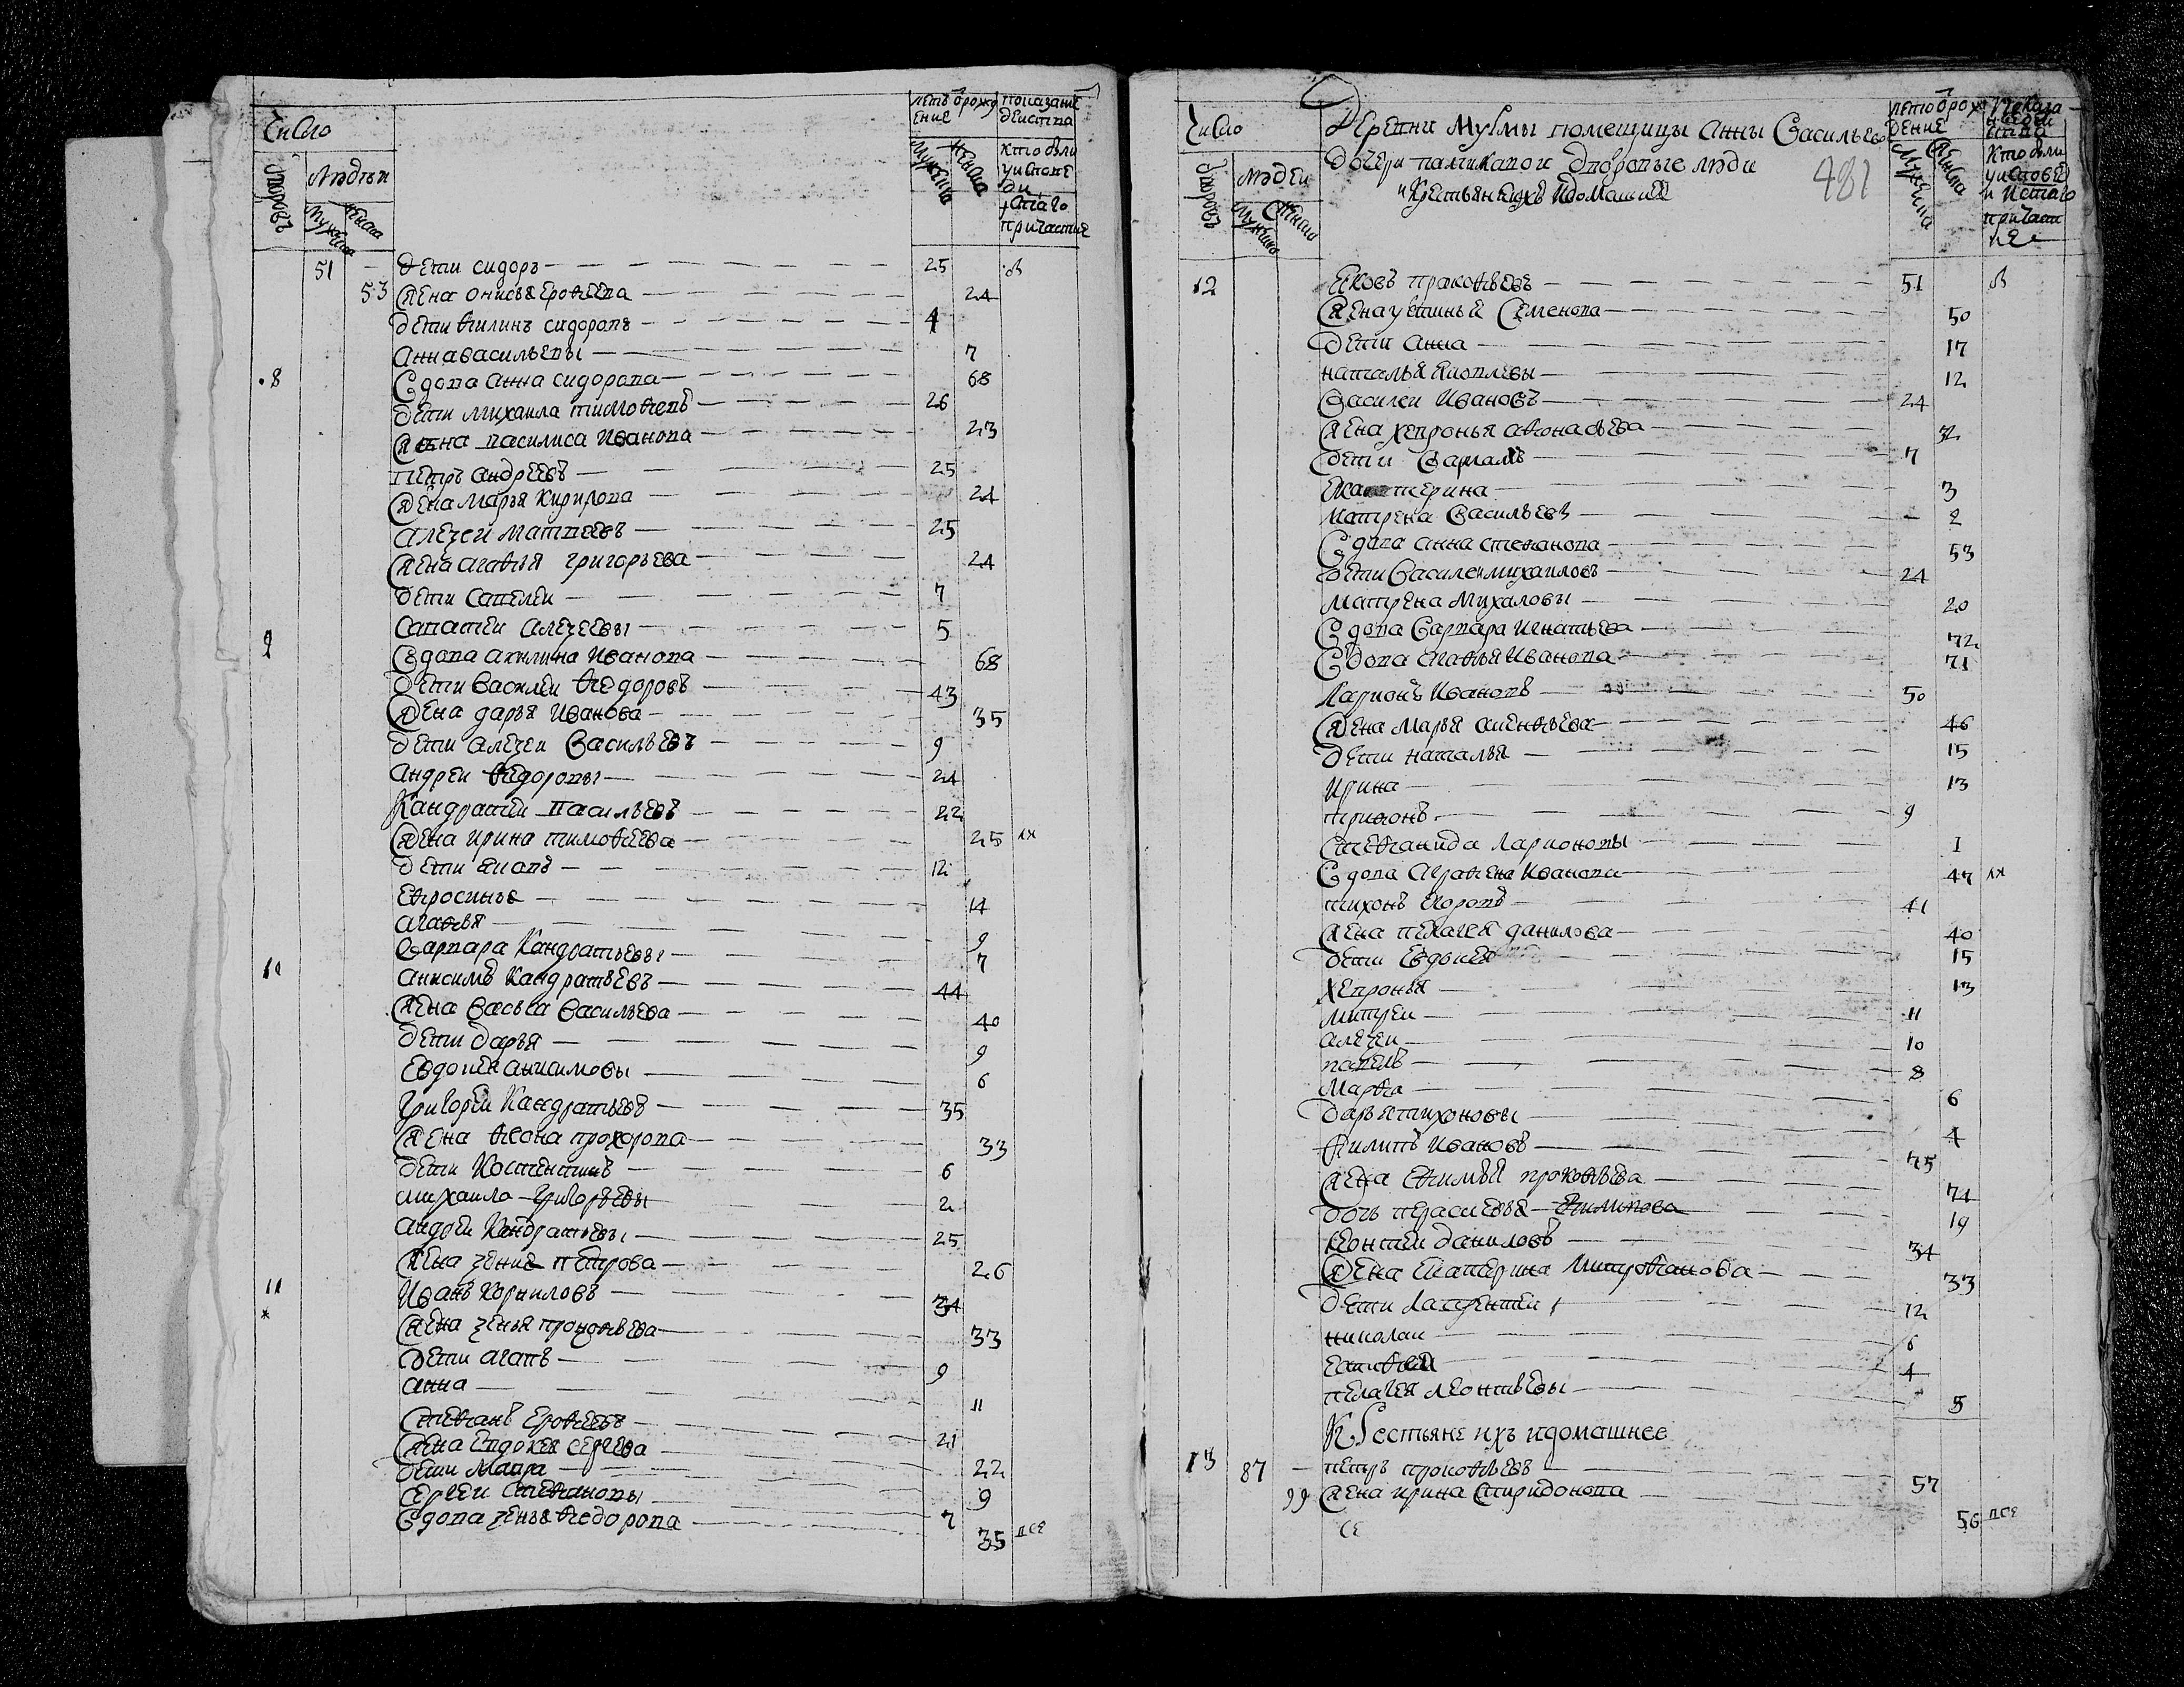 Число
летъ ѿрожд
ение
показание
деиства
дворовъ
Людеи
Мужеска
женска
Мужеска
женска
кто были
у исповѣ
ди
причастия
51 дети сидоръ 25
53 жена онисья Ерофеева 24
дети филипъ сидоровъ 4
Анна васильевы 7
8 вдова анна сидорова 68
дети михаила тимофеевъ 26
жена василиса Иванова 23
петръ андреевъ 25
жена марья кирилова 24
алеѯеи матвеевъ 25
жена агафья григорьева 24
дети савелеи 7
саватеи алеѯеевы 5
9 вдова акилина Иванова 68
дети василеи федоровъ 43
жена дарья Иванова 35
дети алеѯеи васильевъ 9
андреи федоровы 24
Кандратеи васильевъ 22
жена ирина тимофеева 25
дети 12
ефросинья 14
агафья 9
варвара Кандратьевы 7
10 анисимъ Кандратьевъ 44
жена васьса васильева 40
дети дарья 9
Евдокея анисимовы 6
григореи Кандратьевъ 35
жена прохорова 33
дети Костентинъ 6
михаила григорьевы 2
андреи Кандратьевы 25
жена ѯения петрова 26
11 Иванъ корниловъ 34
жена ѯенья прокофьева 33
дети агапъ 9
анна 11
стефанъ Ерофеевъ 21
жена Евдокея сергеева 22
дети мавра 9
сергеи стефановы 7
вдова ѯенья федорова 35 все
Число
Деревни Муѯмы помещицы анны васильевои
дочери дворовые люди
и крестьянских идомашие
481
летоѿрож
дение
показа
ние деи
ства
дворовъ
Людеи
Мужеска
женска
кто были
у исповед
и и стаго
причаст
ие
12 Яковъ пракофьевъ 51
жена устинья семенова 50
дети анна 17
наталья яковлевы 12
василеи Ивановъ 24
жена хевронья афонасьева
дети варламъ 7
Екатерина 3
матрена васильевы 2
вдова анна стефанова 53
дети василеи михаиловъ 24
матрена михаловы 20
вдова варвара игнатьева 72
вдова агафья Иванова 71
Ларионъ Ивановъ 50
жена марья аксенфьева 46
дети наталья 15
ирина 13
трифонъ 9
стефанида ларионовы 1
вдова аграфена Иванова 47
тихонъ Егоровъ 41
жена пелагея данилова 40
дети Евдокея 15
хевронья 13
митреи 11
алеѯеи 10
павелъ 8
марфа 6
дарья тихоновы 4
филипъ Ивановъ 75
жена ефимья прокофьева 74
дочь парасковья филипова 19
леонтеи даниловъ 34
жена Екатерина митрофанова 33
дети лаврентеи 12
николаи 6
4
пелагея леонтьевы 5
Крестьяне ихъ идомашнее
13 87 петръ прокофьевъ 57
99 жена ирина спиридонова 56 все